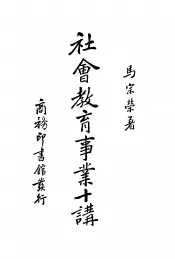 馬宗榮著
社會教育事業十講
商務印書館發行